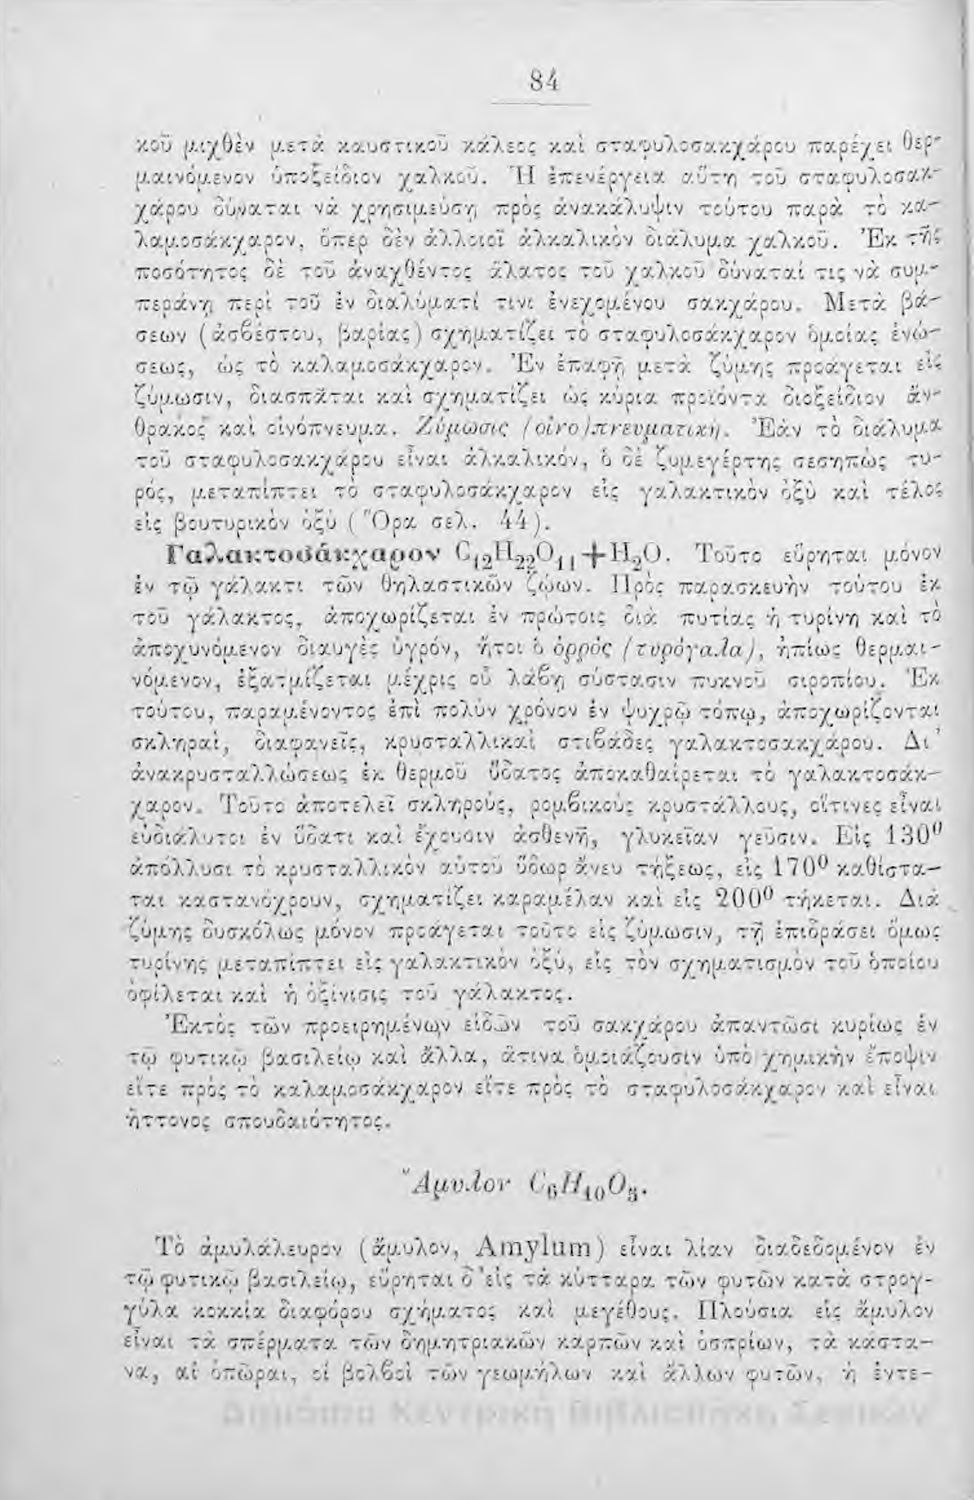 84
κοῦ μιχθὲν μετὰ καυστικοῦ κάλεος καὶ σταφυλοσακχάρου παρέχει θερ-
μαινόμενον ὑποξείδιον χαλκοῦ. Ἡ ἐπενέργεια αὕτη τοῦ σταφυλοσακ-
χάρου δύναται νὰ χρησιμεύσῃ πρὸς ἀνακάλυψιν τούτου παρὰ τὸ κα-
λαμοσάκχαρον, ὅπερ δὲν ἀλλοιοῖ ἀλκαλικὸν διάλυμα χαλκοῦ. Ἐκ τῆς
ποσότητος δὲ τοῦ ἀναχθέντος ἅλατος τοῦ χαλκοῦ δύναταί τις νὰ συμ-
περάνῃ περὶ τοῦ ἐν διαλύματί τινι ἐνεχομένου σακχάρου. Μετὰ βά-
σεων (ἀσβέστου, βαρίας) σχηματίζει τὸ σταφυλοσάκχαρον ὁμοίας ἑνώ-
σεως, ὡς τὸ καλαμοσάκχαρον. Ἐν ἐπαφῇ μετὰ ζύμης προάγεται εἰς
ζύμωσιν, διασπᾶται καὶ σχηματίζει ὡς κύρια προϊόντα διοξείδιον ἄν-
θρακος καὶ οἰνόπνευμα. Ζύμωσις (οἰνο)πνευματική. Ἐὰν τὸ διάλυμα
τοῦ σταφυλοσακχάρου εἶναι ἀλκαλικόν, ὁ δὲ ζυμεγέρτης σεσηπὼς τυ-
ρός, μεταπίπτει τὸ σταφυλοσάκχαρον εἰς γαλακτικὸν ὀξὺ καὶ τέλος
εἰς βουτυρικὸν ὀξὺ (Ὅρα σελ. 44).
Γαλακτοσάκχαρον C₁₂H₂₂O₁₁+H₂O. Τοῦτο εὕρηται μόνον
ἐν τῷ γάλακτι τῶν θηλαστικῶν ζώων. Πρὸς παρασκευὴν τούτου ἐκ
τοῦ γάλακτος, ἀποχωρίζεται ἐν πρώτοις διὰ πυτίας ἡ τυρίνη καὶ τὸ
ἀποχυνόμενον διαυγὲς ὑγρόν, ἤτοι ὁ ὀρρὸς (τυρόγαλα), ἠπίως θερμαι-
νόμενον, ἐξατμίζεται μέχρις οὗ λάβῃ σύστασιν πυκνοῦ σιροπίου. Ἐκ
τούτου, παραμένοντος ἐπὶ πολὺν χρόνον ἐν ψυχρῷ τόπῳ, ἀποχωρίζονται
σκληραί, διαφανεῖς, κρυσταλλικαὶ στιβάδες γαλακτοσακχάρου. Δι'
ἀνακρυσταλλώσεως ἐκ θερμοῦ ὕδατος ἀποκαθαίρεται τὸ γαλακτοσάκ-
χαρον. Τοῦτο ἀποτελεῖ σκληρούς, ρομβικοὺς κρυστάλλους, οἵτινες εἶναι
εὐδιάλυτοι ἐν ὕδατι καὶ ἔχουσιν ἀσθενῆ, γλυκεῖαν γεῦσιν. Εἰς 130⁰
ἀπόλλυσι τὸ κρυσταλλικὸν αὐτοῦ ὕδωρ ἄνευ τήξεως, εἰς 170⁰ καθίστα-
ται καστανόχρουν, σχηματίζει καραμέλαν καὶ εἰς 200⁰ τήκεται. Διὰ
ζύμης δυσκόλως μόνον προάγεται τοῦτο εἰς ζύμωσιν, τῇ ἐπιδράσει ὅμως
τυρίνης μεταπίπτει εἰς γαλακτικὸν ὀξύ, εἰς τὸν σχηματισμὸν τοῦ ὁποίου
ὀφίλεται καὶ ἡ ὀξίνισις τοῦ γάλακτος.
Ἐκτὸς τῶν προειρημένων εἰδῶν τοῦ σακχάρου ἀπαντῶσι κυρίως ἐν
τῷ φυτικῷ βασιλείῳ καὶ ἄλλα, ἅτινα ὁμοιάζουσιν ὑπὸ χημικὴν ἔποψιν
εἴτε πρὸς τὸ καλαμοσάκχαρον εἴτε πρὸς τὸ σταφυλοσάκχαρον καὶ εἶναι
ἥττονος σπουδαιότητος.
Ἄμυλον C₆H₁₀O₅.
Τὸ ἀμυλάλευρον (ἄμυλον, Amylum) εἶναι λίαν διαδεδομένον ἐν
τῷ φυτικῷ βασιλείῳ, εὕρηται δ' εἰς τὰ κύτταρα τῶν φυτῶν κατὰ στρογ-
γύλα κοκκία διαφόρου σχήματος καὶ μεγέθους. Πλούσια εἰς ἄμυλον
εἶναι τὰ σπέρματα τῶν δημητριακῶν καρπῶν καὶ ὀσπρίων, τὰ κάστα-
να, αἱ ὀπῶραι, οἱ βολβοὶ τῶν γεωμήλων καὶ ἄλλων φυτῶν, ἡ ἐντε-
Δημόσια Κεντρική Βιβλιοθήκη Σερρών